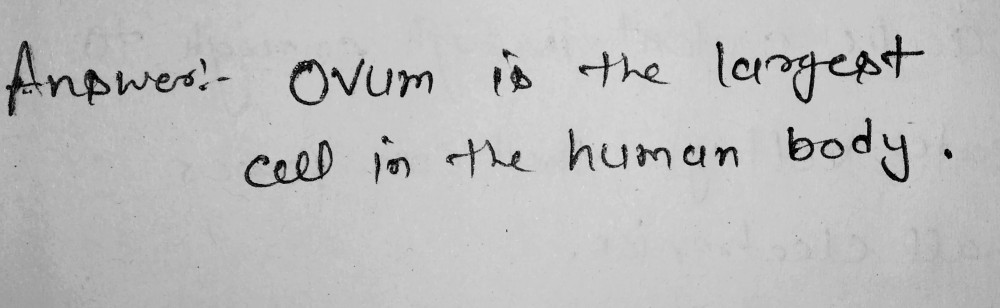 Answer:- Ovum is the largest
cell in the human body.